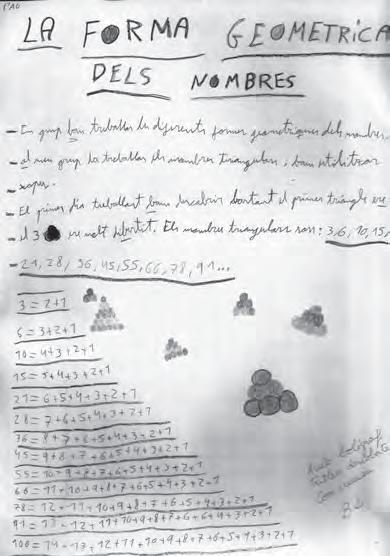 PAU
LA FORMA GEOMETRICA
DELS NOMBRES
- En grup bam treballar les diferents formes geometriques dels nombres.
- al meu grup ha treballar els nombres triangulars, bam utilitzar
- xapes.
- El primer dia treballant bam descobrir bastant el primer triangle era
- el 3 era molt debatit. Els nombres triangulars son: 3, 6, 10, 15,
- 21, 28, 36, 45, 55, 66, 78, 91...
3 = 2+1
6 = 3+2+1
10 = 4+3+2+1
15 = 5+4+3+2+1
21 = 6+5+4+3+2+1
28 = 7+6+5+4+3+2+1
36 = 8+7+6+5+4+3+2+1
45 = 9+8+7+6+5+4+3+2+1
55 = 10+9+8+7+6+5+4+3+2+1
66 = 11+10+9+8+7+6+5+4+3+2+1
78 = 12+11+10+9+8+7+6+5+4+3+2+1
91 = 13+12+11+10+9+8+7+6+5+4+3+2+1